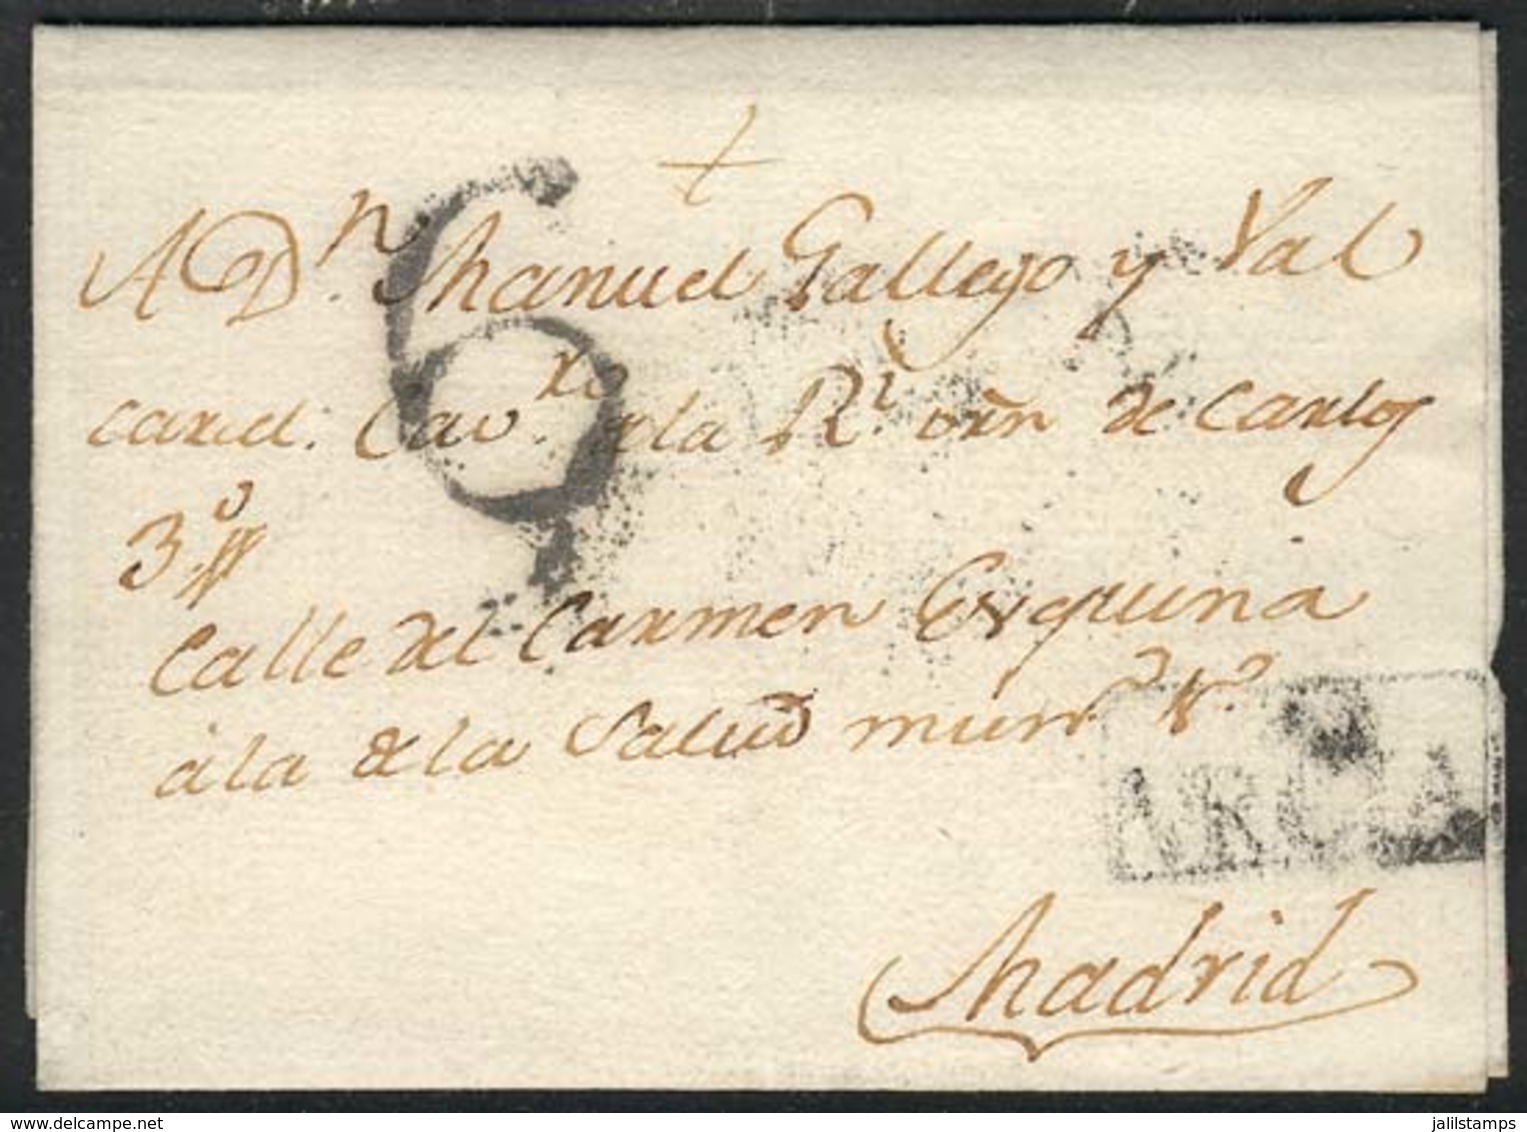 +
A Dn. Manuel Gallego y Val
carcel. Cavro. de la Rl. orn de Carlos
3o
Calle del Carmen Esquina
á la de la Salud
6
ARCIA
Madrid
delcampe.net
jalilstamps